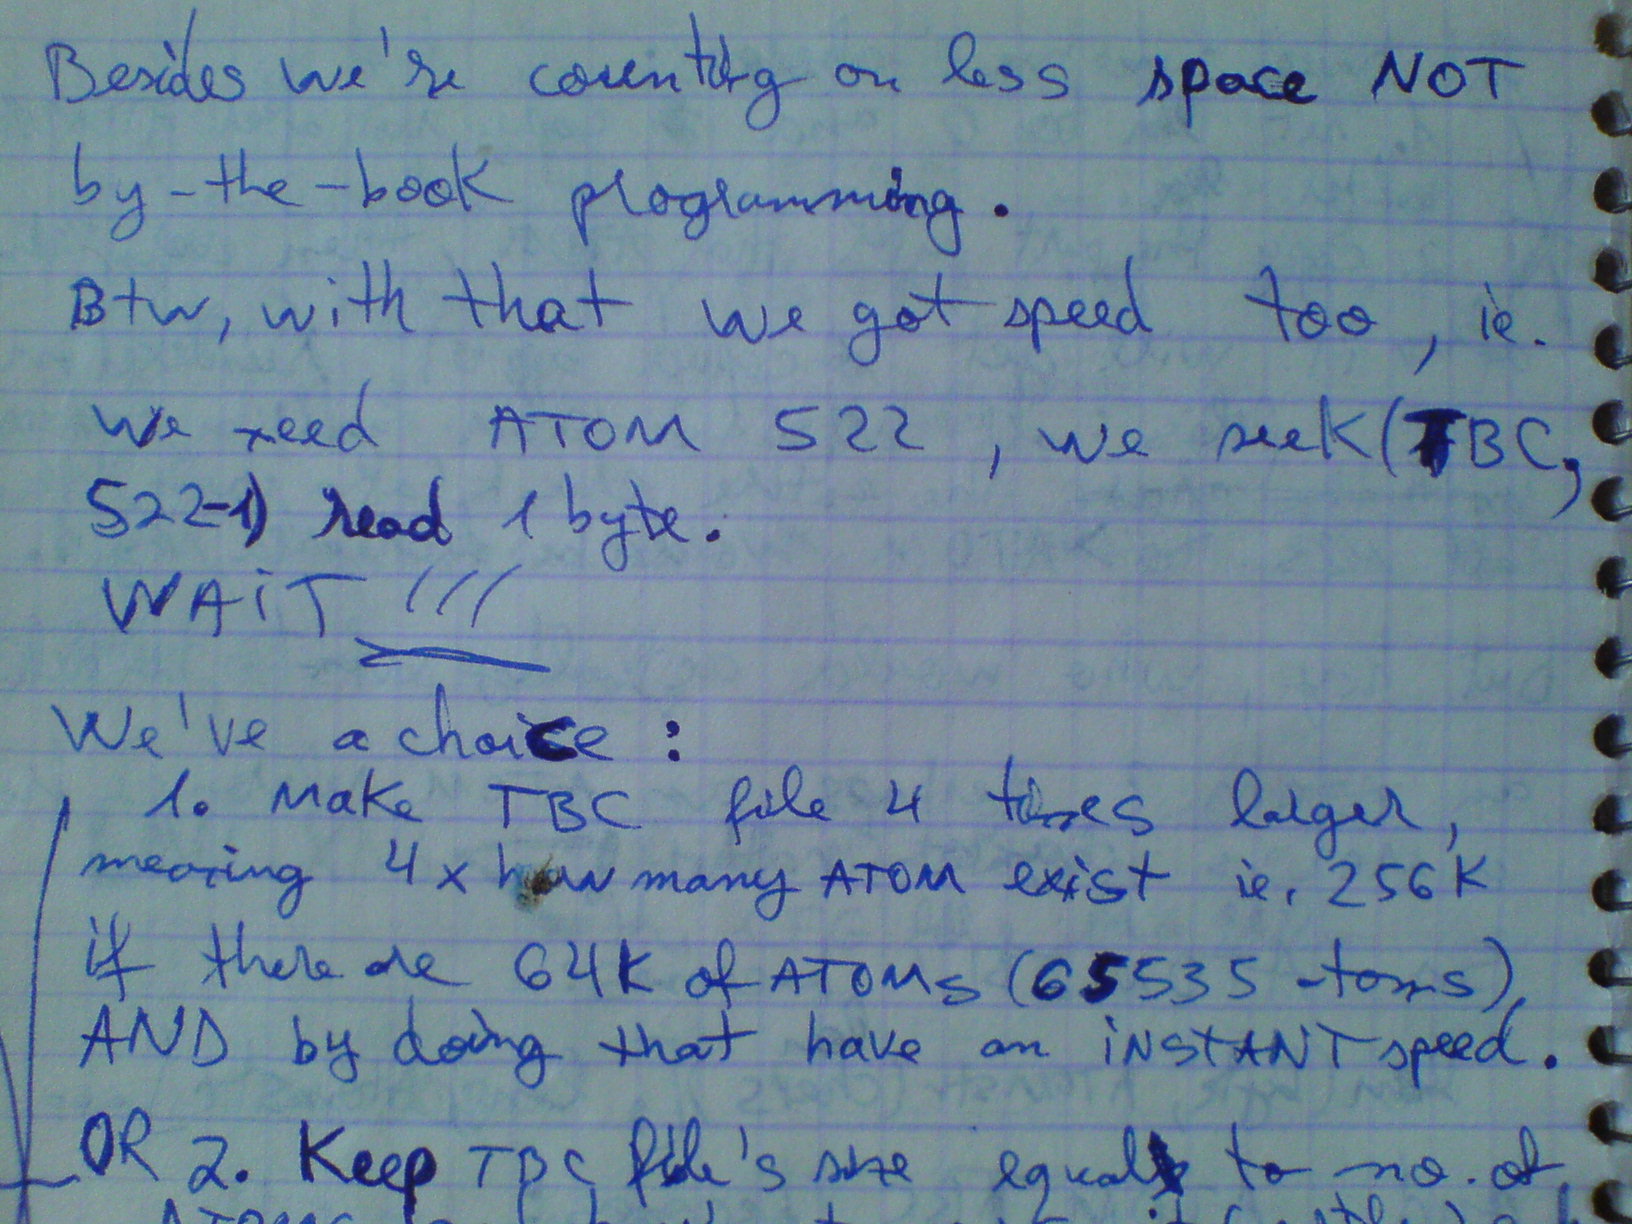 Besides we're counting on less space NOT
by-the-book programming.
Btw, with that we got speed too, ie.
we need ATOM 522, we seek(TBC,
522-1) read 1 byte.
WAiT !!!
We've a choice:
1. Make TBC file 4 times larger,
meaning 4 x how many ATOM exist ie. 256K
if there are 64K of ATOMs (65535 -toms),
AND by doing that have an iNSTANT speed.
OR 2. Keep TBC file's size equal to no. of
ATOMs